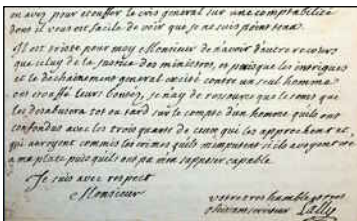 on avez pour etouffer le cris general sur une comptabilité
dont il vous est facile de voir que je ne suis point tenu.
Il est triste pour moy Monsieur de n'avoir d'autre recours
que celuy de la justice des ministres, et puisque les intrigues
et le déchainement general excité contre un seul homme
ont etouffé leurs bontez, je n'ay de ressource que le tems que
les desabusera tot ou tard sur le compte d'un homme qu'ils ont
confondus avec les trois quarts de ceux qui les approchent et
qui auroyent commis les crimes qu'ils m'imputent s'ils avoyent eté
a ma place puis qu'ils ont pu m'en supposer capable.
Je suis avec respect
Monsieur
votre tres humble et tres
obeissant serviteur Lally